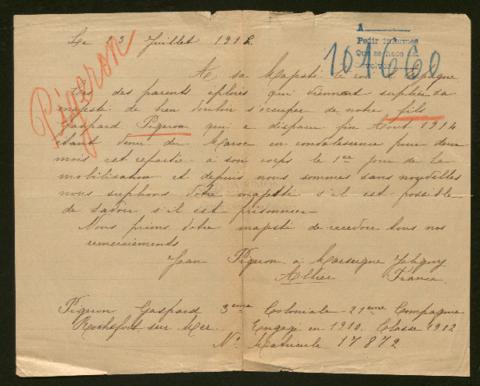 Le 13 Juillet 1916
A
Pedir informes
Que se hace
101060
Pigeron
A sa Majesté le roi d'Espagne
des parents eplorés qui viennent supplier sa
majesté de bien vouloir s'occuper de notre fils
Gaspard Pigeron qui a disparu fin Aout 1914
étant venu du Maroc en convalessence pour deux
mois est repartie a son corps le 1er jour de la
mobilisation et depuis nous sommes sans nouvelles
nous suplions Votre majesté s'il est possible
de savoir s'il est prisonnier
Nous prions Votre majesté de recevoire tous nos
remerciements
Jean Pigeron a
Allier France
Pigeron Gaspard 3eme Coloniale - 21eme Compagnie
Rochefort sur Mer. Engagé en 1910. Classe 1912
No Matricule 17872